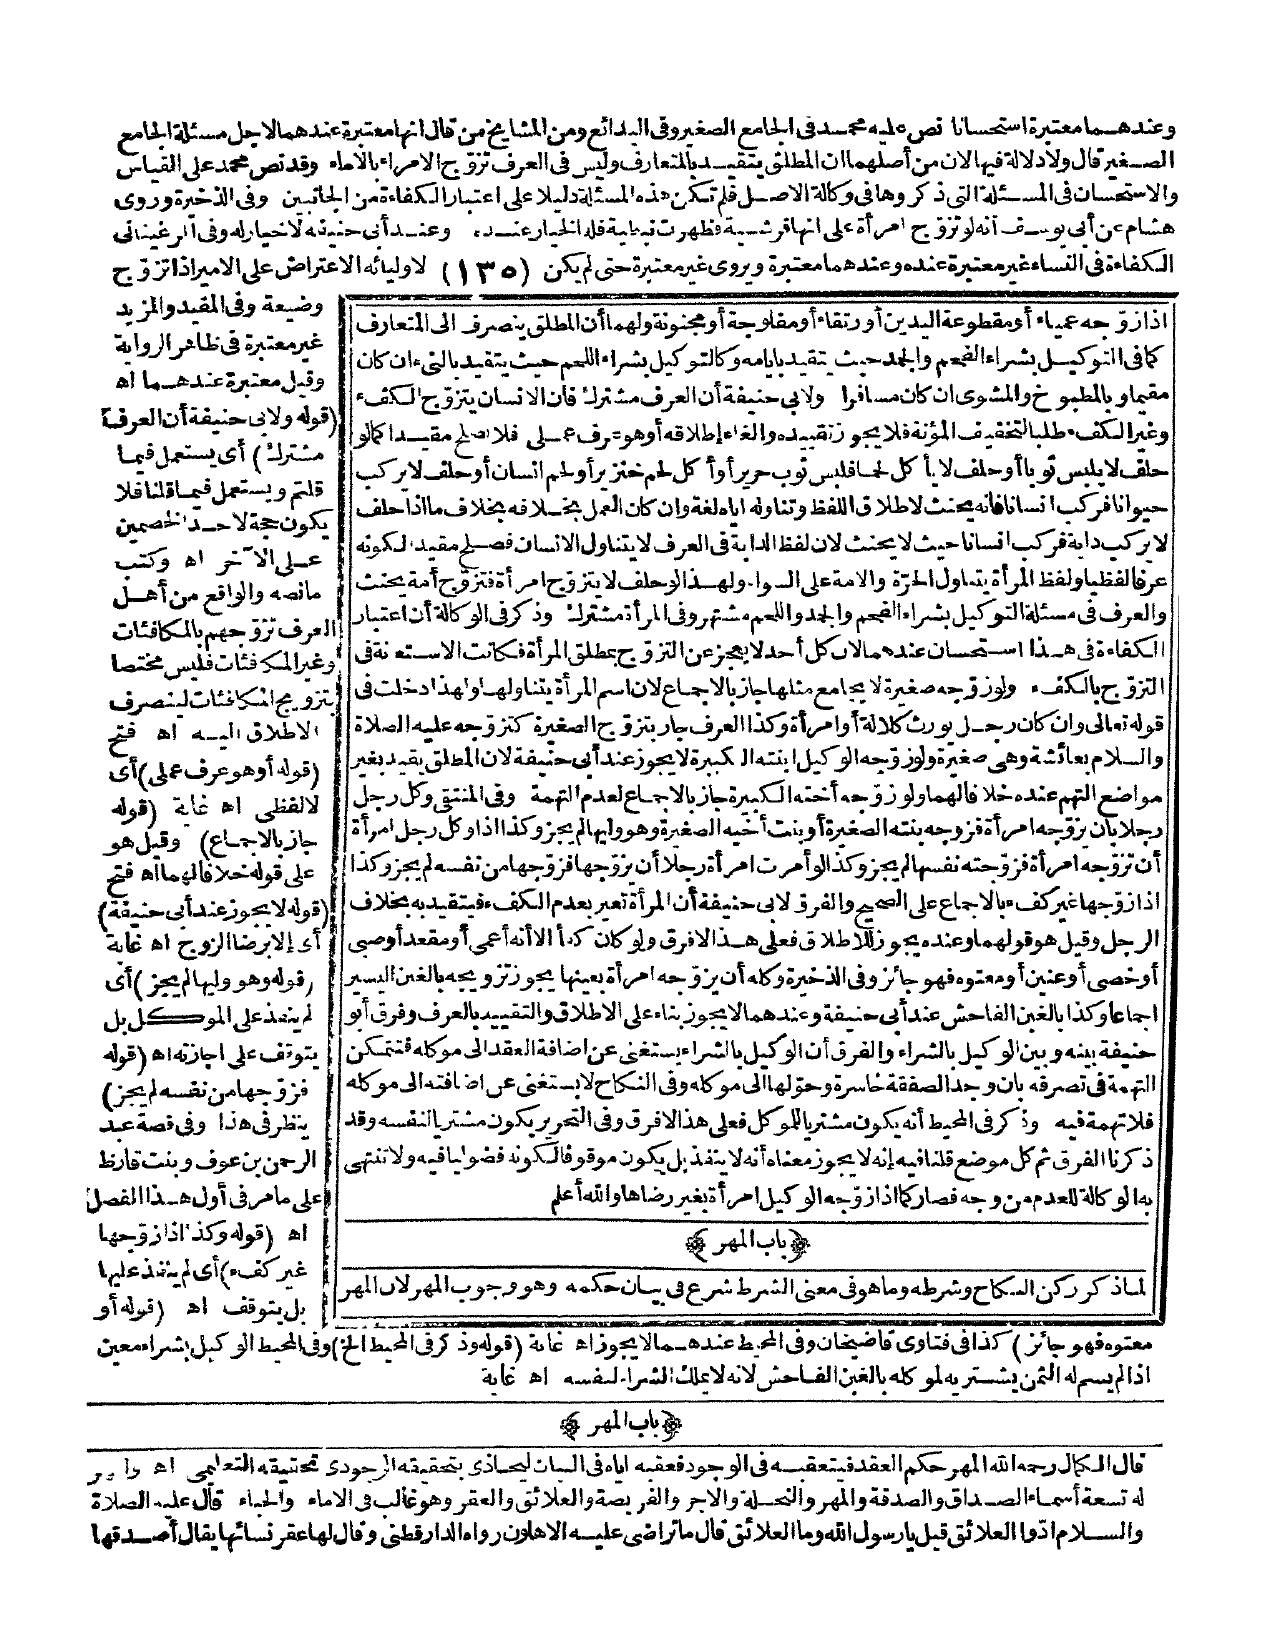 وعندهما معتبرة استحسانا نص عليه محمد فى الجامع الصغير وفى البدائع ومن المشايخ من قال انها معتبرة عندهما لاجل مسئلة الجامع
الصغير قال ولا دلالة فيها لان من أصلهما ان المطلق يتقيد بالمتعارف وليس فى العرف تزوّج الامراء بالاماء وقد نص محمد على القياس
والاستحسان فى المسئلة التى ذكروها فى وكالة الاصل فلم تكن هذه المسئلة دليلا على اعتبار الكفاءة من الجانبين وفى الذخيرة وروى
هشام عن أبى يوسف أنه لو تزوّج امرأة على انها قرشية فظهرت نبطية فله الخيار عنده وعند أبى حنيفة لا خيار له وفى المرغينانى
الكفاءة فى النساء غير معتبرة عنده وعندهما معتبرة ويروى غير معتبرة حتى لم يكن (١٣٥) لاوليائه الاعتراض على الامير اذا تزوّج
وضيعة وفى المفيد والمزيد
غير معتبرة فى ظاهر الرواية
وقيل معتبرة عندهما اه
(قوله ولابى حنيفة أن العرف
مشترك) أى يستعمل فيما
قلتم ويستعمل فيما قلنا فلا
يكون حجة لاحد الخصمين
على الآخر اه وكتب
مانصه والواقع من أهل
العرف تزوّجهم بالمكافئات
وغير المكافئات فليس مختصا
بتزويج المكافئات لينصرف
الاطلاق اليه اه فتح
(قوله أو هو عرف عملى) أى
لا لفظى اه غاية (قوله
جاز بالاجماع) وقيل هو
على قوله خلافا لهما اه فتح
(قوله لا يجوز عند أبى حنيفة)
أى إلا برضا الزوج اه غاية
(قوله وهو وليها لم يجز) أى
لم ينفذ على الموكل بل
يتوقف على اجازته اه (قوله
فزوّجها من نفسه لم يجز)
ينظر فى هذا وفى قصة عبد
الرحمن بن عوف وبنت قارظ
على ما مر فى أول هذا الفصل
اه (قوله وكذا اذا زوّجها
غير كفء) أى لم ينفذ عليها
بل يتوقف اه (قوله أو
اذا زوّجه عمياء أو مقطوعة اليدين أو رتقاء أو مفلوجة أو مجنونة ولهما أن المطلق ينصرف الى المتعارف
كما فى التوكيل بشراء الفحم والجمد حيث يتقيد بايامه وكالتوكيل بشراء اللحم حيث يتقيد بالنىء ان كان
مقيما وبالمطبوخ والمشوى ان كان مسافرا ولابى حنيفة أن العرف مشترك فان الانسان يتزوّج الكفء
وغير الكفء طلبا لتخفيف المؤنة فلا يجوز تقييده والغاء إطلاقه أو هو عرف عملى فلا يصلح مقيدا كما لو
حلف لا يلبس ثوبا أو حلف لا يأكل لحما فلبس ثوب حرير أو أكل لحم خنزير أو لحم انسان أو حلف لا يركب
حيوانا فركب انسانا فانه يحنث لاطلاق اللفظ وتناوله اياه لغة وان كان العمل بخلافه بخلاف ما اذا حلف
لا يركب دابة فركب انسانا حيث لا يحنث لان لفظ الدابة فى العرف لا يتناول الانسان فصلح مقيدا لكونه
عرفا لفظيا ولفظ المرأة يتناول الحرّة والامة على السواء ولهذا لو حلف لا يتزوّج امرأة فتزوّج أمة يحنث
والعرف فى مسئلة التوكيل بشراء الفحم والجمد واللحم مشتهر وفى المرأة مشترك وذكر فى الوكالة أن اعتبار
الكفاءة فى هذا استحسان عندهما لان كل أحد لا يعجز عن التزوّج بمطلق المرأة فكانت الاستعانة فى
التزوّج بالكفء ولو زوّجه صغيرة لا يجامع مثلها جاز بالاجماع لان اسم المرأة يتناولها ولهذا دخلت فى
قوله تعالى وان كان رجل يورث كلالة أو امرأة وكذا العرف جار بتزوّج الصغيرة كتزوّجه عليه الصلاة
والسلام بعائشة وهى صغيرة ولو زوّجه الوكيل ابنته الكبيرة لا يجوز عند أبى حنيفة لان المطلق يقيد بغير
مواضع التهم عنده خلافا لهما ولو زوّجه أخته الكبيرة جاز بالاجماع لعدم التهمة وفى المنتقى وكل رجل
رجلا بان يزوّجه امرأة فزوجه بنته الصغيرة أو بنت أخيه الصغيرة وهو وليها لم يجز وكذا اذا وكل رجل امرأة
أن تزوّجه امرأة فزوّجته نفسها لم يجز وكذا لو أمرت امرأة رجلا أن يزوّجها فزوّجها من نفسه لم يجز وكذا
اذا زوّجها غير كفء بالاجماع على الصحيح والفرق لابى حنيفة أن المرأة تعير بعدم الكفء فيتقيد به بخلاف
الرجل وقيل هو قولهما وعنده يجوز للاطلاق فعلى هذا لا فرق ولو كان كفأ الا أنه أعمى أو مقعد أو صبى
أو خصى أو عنين أو معتوه فهو جائز وفى الذخيرة وكله أن يزوّجه امرأة بعينها يجوز تزويجه بالغبن اليسير
اجماعا وكذا بالغبن الفاحش عند أبى حنيفة وعندهما لا يجوز بناء على الاطلاق والتقييد بالعرف وفرق أبو
حنيفة بينه وبين الوكيل بالشراء والفرق أن الوكيل بالشراء يستغنى عن اضافة العقد الى موكله فتتمكن
التهمة فى تصرفه بان وجد الصفقة خاسرة وحوّلها الى موكله وفى النكاح لا يستغنى عن اضافته الى موكله
فلا تهمة فيه وذكر فى المحيط أنه يكون مشتريا للموكل فعلى هذا لا فرق وفى التحرير يكون مشتريا لنفسه وقد
ذكرنا الفرق ثم كل موضع قلنا فيه إنه لا يجوز معناه أنه لا ينفذ بل يكون موقوفا لكونه فضوليا فيه ولا تنتهى
به الوكالة للعدم من وجه فصار كما اذا زوّجه الوكيل امرأة بغير رضاها والله أعلم
﴿باب المهر﴾
لما ذكر ركن النكاح وشرطه وما هو فى معنى الشرط شرع فى بيان حكمه وهو وجوب المهر لان المهر
معتوه فهو جائز) كذا فى فتاوى قاضيخان وفى المحيط عندهما لا يجوز اه غاية (قوله وذكر فى المحيط الخ) وفى المحيط الوكيل بشراء معين
اذا لم يسم له الثمن يشتريه لموكله بالغبن الفاحش لانه لا يملك الشراء لنفسه اه غاية
﴿باب المهر﴾
قال الكمال رحمه الله المهر حكم العقد فيتعقبه فى الوجود فعقبه اياه فى البيان ليحاذى بتحقيقه الوجودى تحقيقه التعليمى اه
له تسعة أسماء الصداق والصدقة والمهر والنحلة والاجر والفريضة والعلائق والعقر وهو غالب فى الاماء والحباء قال عليه الصلاة
والسلام ادّوا العلائق قيل يا رسول الله وما العلائق قال ما تراضى عليه الاهلون رواه الدارقطنى وقال لها عقر نسائها يقال أصدقها